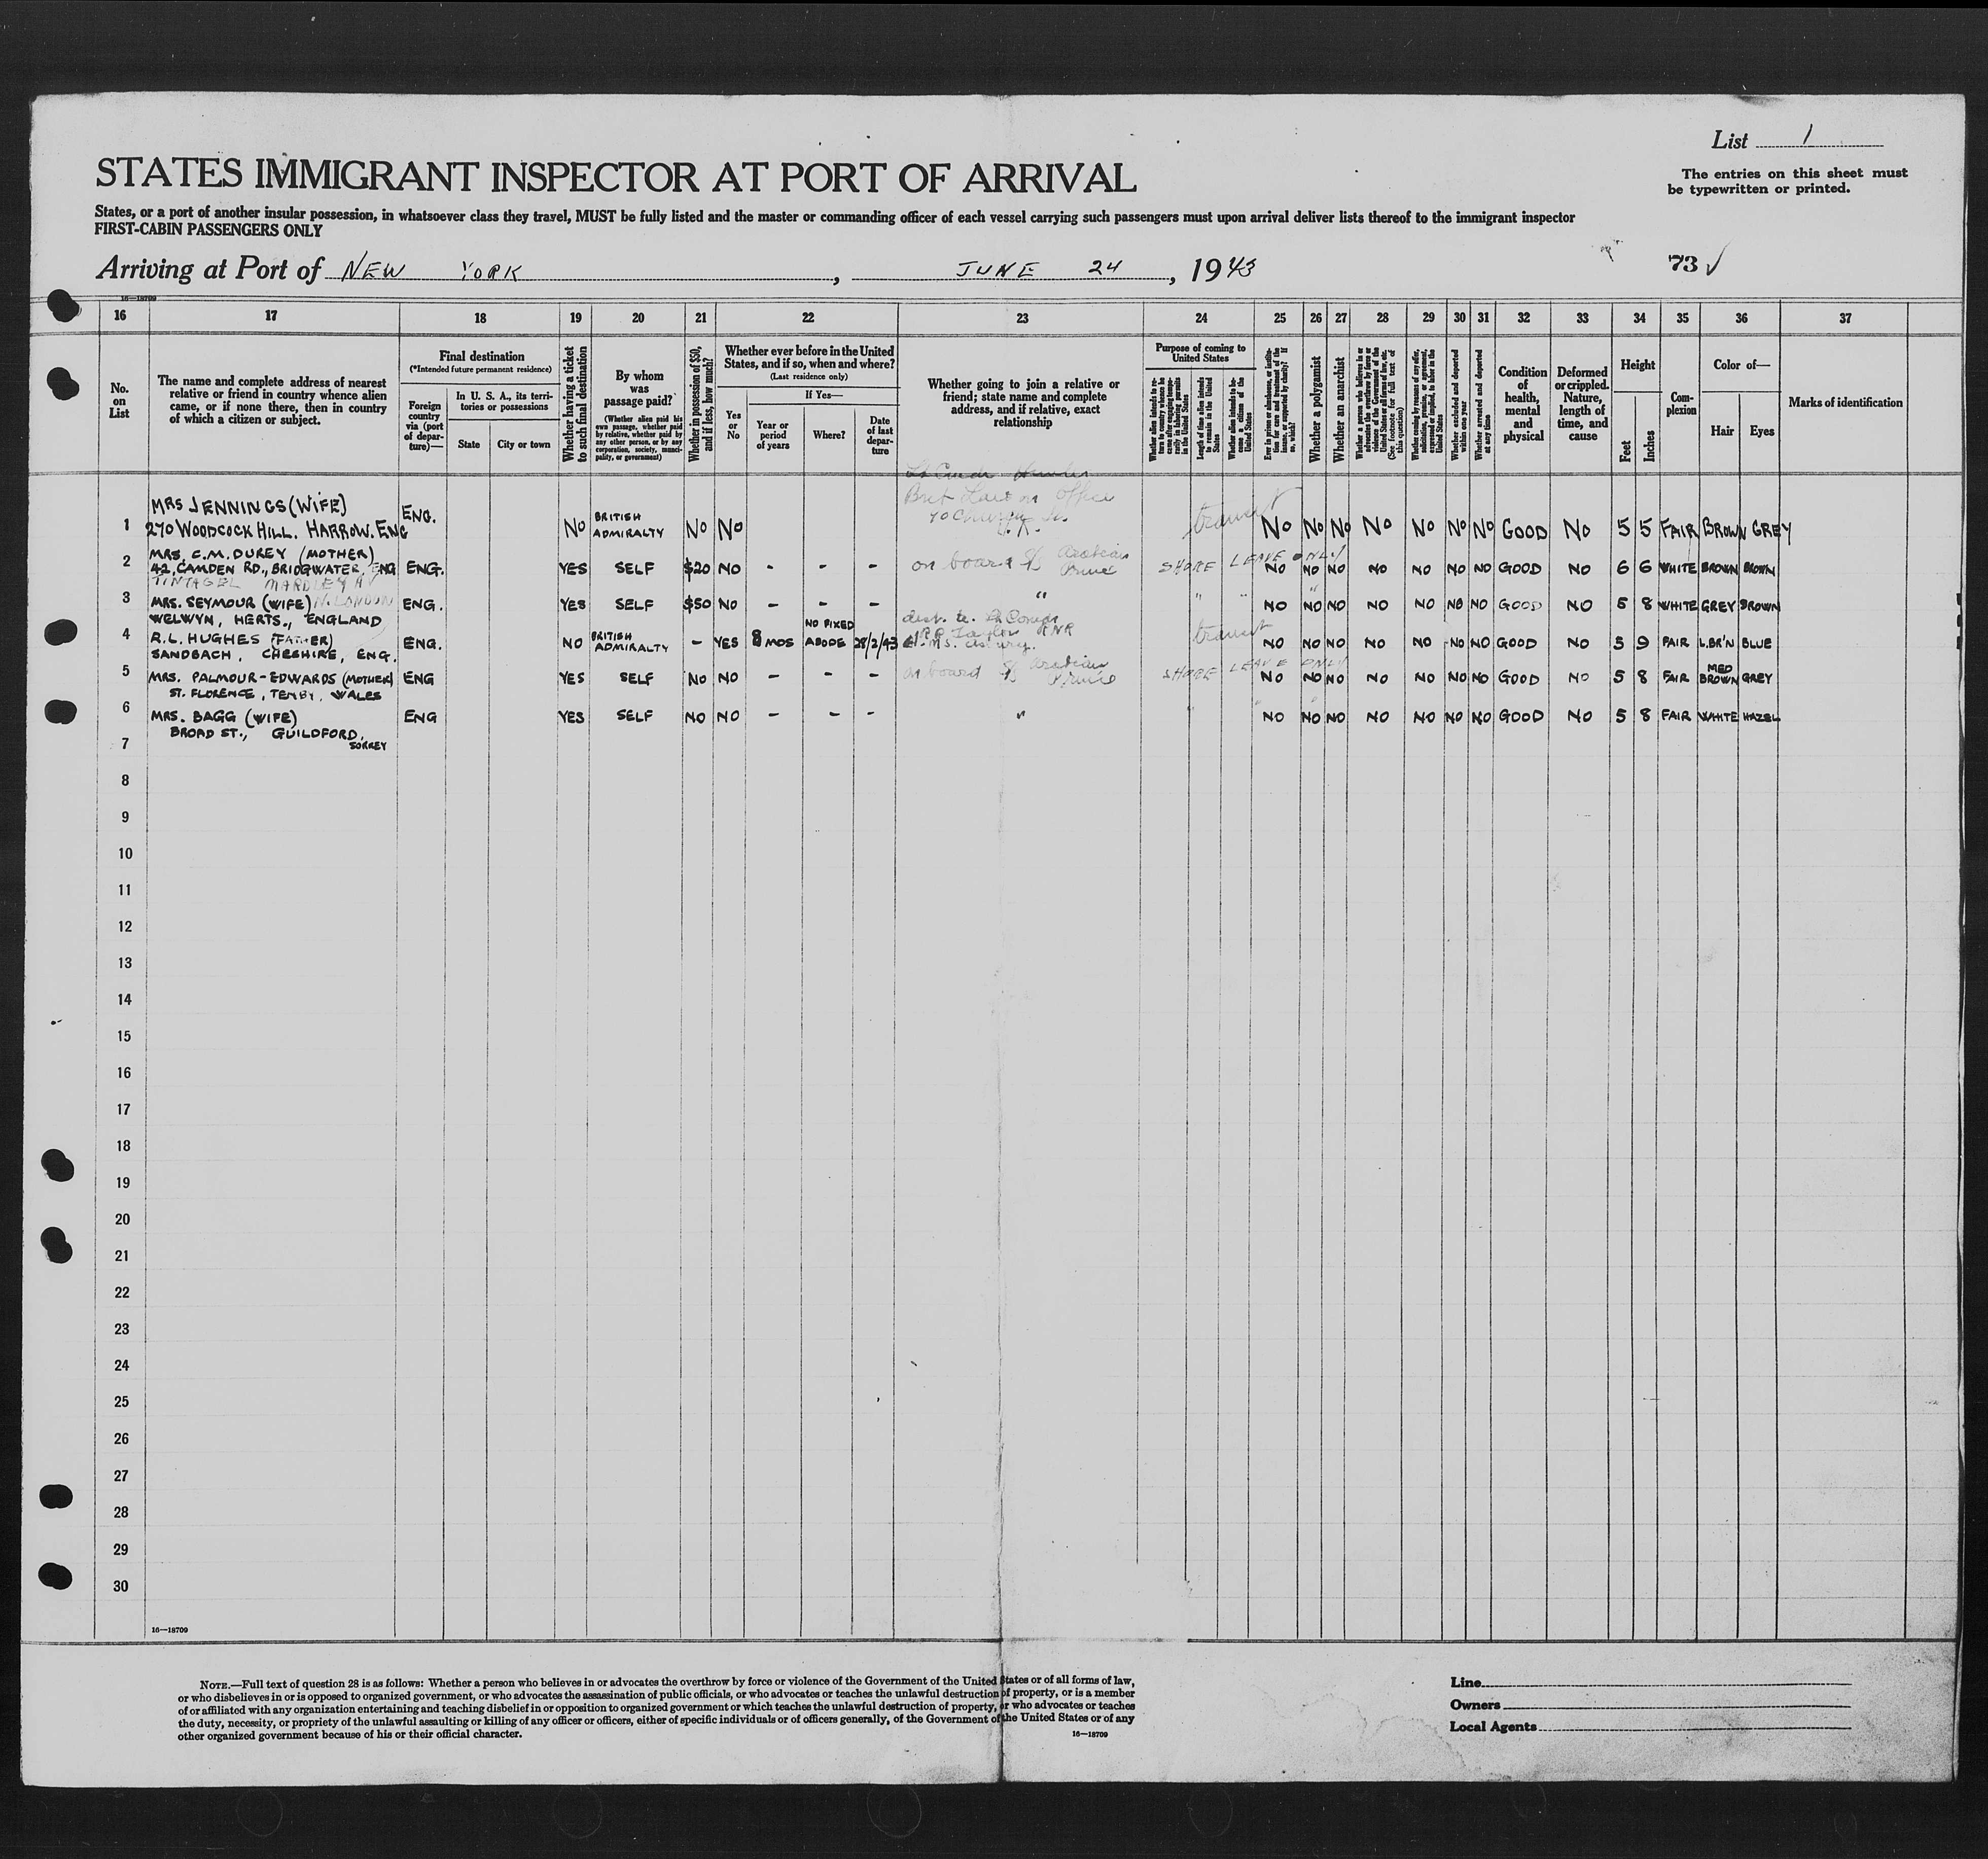 List 1
The entries on this sheet must
be typewritten or printed.
STATES IMMIGRANT INSPECTOR AT PORT OF ARRIVAL
States, or a port of another insular possession, in whatsoever class they travel, MUST be fully listed and the master or commanding officer of each vessel carrying such passengers must upon arrival deliver lists thereof to the immigrant inspector
FIRST-CABIN PASSENGERS ONLY
Arriving at Port of NEW YORK, JUNE 24, 1943
73 ✓
16—18709
16 17 18 19 20 21 22 23 24 25 26 27 28 29 30 31 32 33 34 35 36 37
No.
on
List
The name and complete address of nearest
relative or friend in country whence alien
came, or if none there, then in country
of which a citizen or subject.
Final destination
(*Intended future permanent residence)
Foreign
country
via (port
of depar-
ture)—
In U. S. A., its terri-
tories or possessions
State City or town
Whether having a ticket
to such final destination
By whom
was
passage paid?
(Whether alien paid his
own passage, whether paid
by relative, whether paid by
any other person, or by any
corporation, society, munici-
pality, or government)
Whether in possession of $50,
and if less, how much?
Whether ever before in the United
States, and if so, when and where?
(Last residence only)
Yes
or
No
If Yes—
Year or
period
of years
Where?
Date
of last
depar-
ture
Whether going to join a relative or
friend; state name and complete
address, and if relative, exact
relationship
Purpose of coming to
United States
Length of time alien intends
to remain in the United
States
Whether alien intends to be-
come a citizen of the
United States
Whether a polygamist
Whether an anarchist
Whether excluded and deported
within one year
Whether arrested and deported
at any time
Condition
of
health,
mental
and
physical
Deformed
or crippled.
Nature,
length of
time, and
cause
Height
Feet Inches
Com-
plexion
Color of—
Hair Eyes
Marks of identification
MRS JENNINGS (WIFE)
1 270 WOODCOCK HILL. HARROW. ENG ENG. NO BRITISH ADMIRALTY NO NO Brit Office transit NO NO NO NO NO NO NO GOOD NO 5 5 FAIR BROWN GREY
MRS. C.M. DUREY (MOTHER)
2 42, CAMDEN RD., BRIDGWATER, ENG ENG. YES SELF $20 NO - - - on board Arabian Prince SHORE LEAVE ONLY NO NO NO NO NO NO NO GOOD NO 6 6 WHITE BROWN BROWN
TINTAGEL MARDLEY AV
3 MRS. SEYMOUR (WIFE) N. LONDON ENG. YES SELF $50 NO - - - " " " " NO NO NO NO NO NO NO GOOD NO 5 8 WHITE GREY BROWN
WELWYN, HERTS., ENGLAND
4 R.L. HUGHES (FATHER) ENG. NO BRITISH ADMIRALTY - YES 8 MOS NO FIXED ABODE 28/2/43 transit NO NO NO NO NO NO NO GOOD NO 5 9 FAIR L.BR'N BLUE
SANDBACH, CHESHIRE, ENG.
5 MRS. PALMOUR-EDWARDS (MOTHER) ENG YES SELF NO NO - - - on board Arabian Prince SHORE LEAVE ONLY NO NO NO NO NO NO NO GOOD NO 5 8 FAIR MED BROWN GREY
ST. FLORENCE, TENBY, WALES
6 MRS. BAGG (WIFE) ENG YES SELF NO NO - - - " " NO NO NO NO NO NO NO GOOD NO 5 8 FAIR WHITE HAZEL
BROAD ST., GUILDFORD,
SURREY
7
8
9
10
11
12
13
14
15
16
17
18
19
20
21
22
23
24
25
26
27
28
29
30
16—18709
NOTE.—Full text of question 28 is as follows: Whether a person who believes in or advocates the overthrow by force or violence of the Government of the United States or of all forms of law,
or who disbelieves in or is opposed to organized government, or who advocates the assassination of public officials, or who advocates or teaches the unlawful destruction of property, or is a member
of or affiliated with any organization entertaining and teaching disbelief in or opposition to organized government or which teaches the unlawful destruction of property, or who advocates or teaches
the duty, necessity, or propriety of the unlawful assaulting or killing of any officer or officers, either of specific individuals or of officers generally, of the Government of the United States or of any
other organized government because of his or their official character.
16—18709
Line
Owners
Local Agents